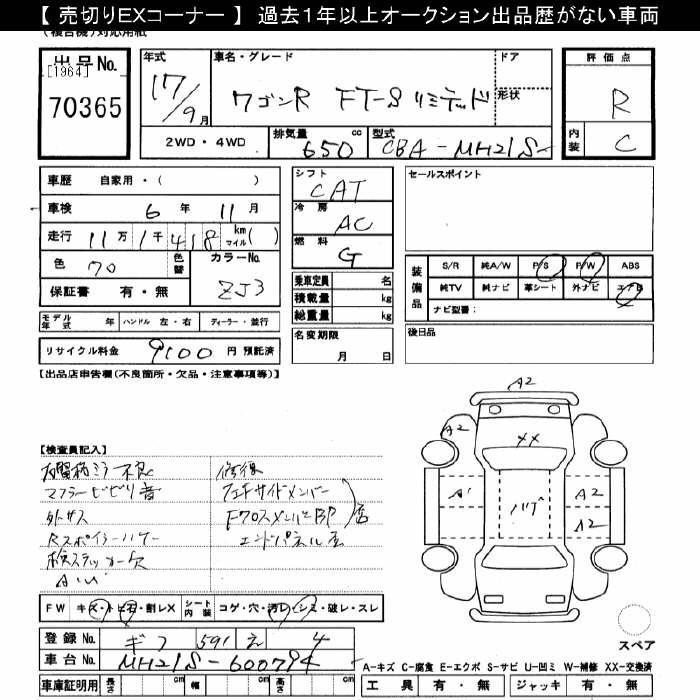 【 売切りEXコーナー 】 過去１年以上オークション出品歴がない車両
(複合機)対応用紙
出品No.
[1964]
70365
年式 17/9月
車名・グレード ワゴンR FT-S リミテッド
ドア
形状
評価点 R
内装 C
2WD・4WD
排気量 650 cc
型式 CBA-MH21S
車歴 自家用・( )
車検 6年 11月
走行 11万 1千 418 km マイル( )
色 色替 カラーNo. ZJ3
保証書 有・無
モデル年式 年 ハンドル 左・右 ディーラー・並行
リサイクル料金 9100 円 預託済
シフト CAT
冷房 AC
燃料 G
乗車定員 名
積載量 kg
総重量 kg
名変期限 月 日
セールスポイント
装備品 S/R 純A/W P/S P/W ABS
純TV 純ナビ 革シート 外ナビ エアB
ナビ型番：
後日品
【出品店申告欄(不良箇所・欠品・注意事項等)】
【検査員記入】
マフラービビリ音
外サス
検ステッカー欠
修復
エンドパネル
FW キズ・トビ石・割レX
シート内装 コゲ・穴・汚レ・シミ・破レ・スレ
登録No. ギフ 591 え 4
車台No. MH21S-600794
車庫証明用 長さ cm 幅 cm 高さ cm
A2
A2
XX
A1
A2
A2
スペア
A-キズ C-腐食 E-エクボ S-サビ U-凹ミ W-補修 XX-交換済
工具 有・無 ジャッキ 有・無